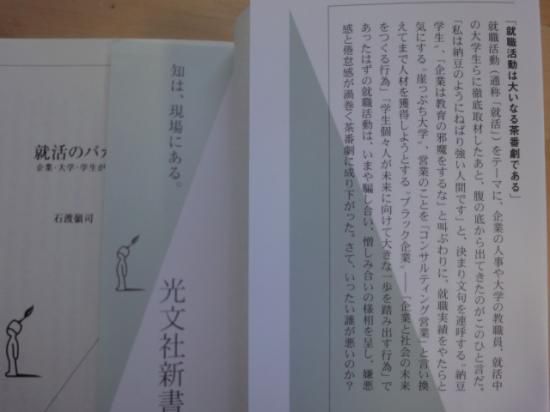 「就職活動は大いなる茶番劇である」
就職活動（通称「就活」）をテーマに、企業の人事や大学の教職員、就活中
の大学生らに徹底取材したあと、腹の底から出てきたのがこのひと言だ。
「私は納豆のようにねばり強い人間です」と、決まり文句を連呼する〝納豆
学生〟、「企業は教育の邪魔をするな」と叫ぶわりに、就職実績をやたらと
気にする〝崖っぷち大学〟、営業のことを「コンサルティング営業」と言い換
えてまで人材を獲得しようとする〝ブラック企業〟――「企業と社会の未来
をつくる行為」「学生個々人が未来に向けて大きな一歩を踏み出す行為」で
あったはずの就職活動は、いまや騙し合い、憎しみ合いの様相を呈し、嫌悪
感と倦怠感が渦巻く茶番劇に成り下がった。さて、いったい誰が悪いのか？
知は、現場にある。
光文社新書
就活のバ
企業・大学・学生が
石渡嶺司